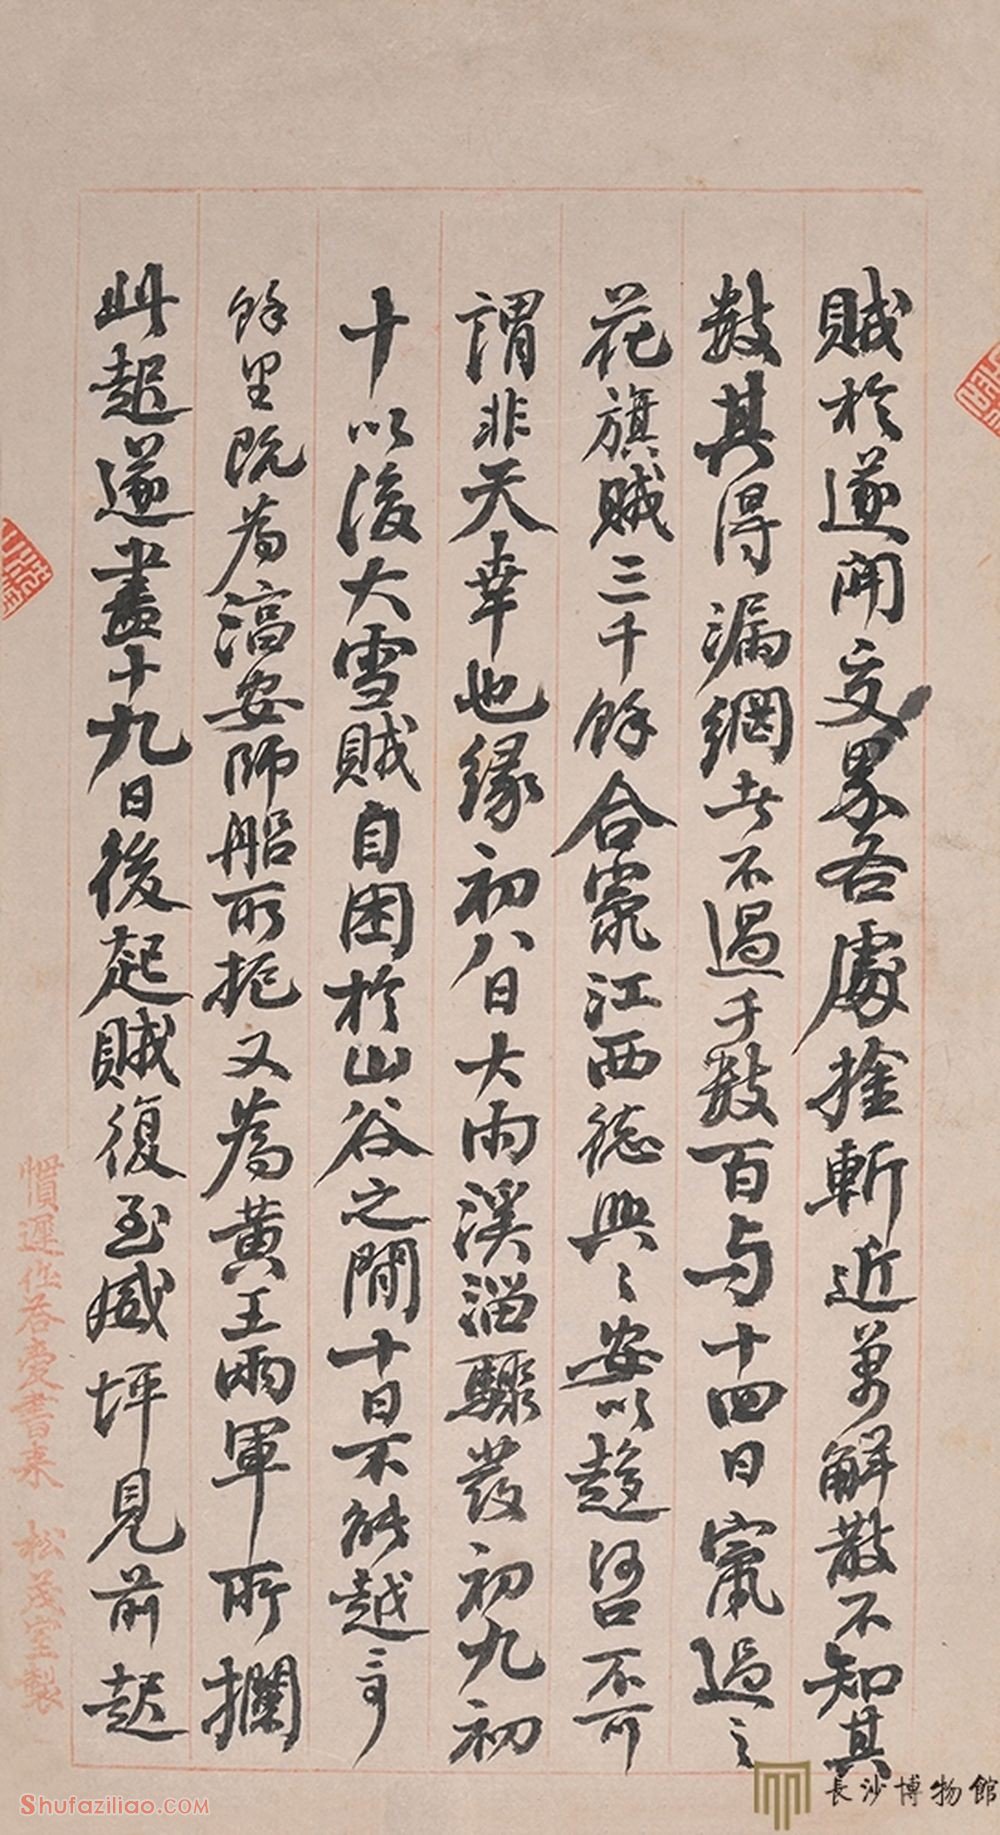 賊於遂開交界各處擒斬近萬解散不知其
數其得漏網者不過千數百与十四日竄過之
花旗賊三千餘合竄江西德興、安以趨河口不可
謂非天幸也緣初八日大雨溪溜驟發初九初
十以後大雪賊自困於山谷之間十日不能越
餘里既為淳安師船所扼又為黃王兩軍所攔
此起遂盡十九日後起賊復至臧坪見前起
慣遲作答愛書來 松茂室製
長沙博物館
Shufaziliao.COM